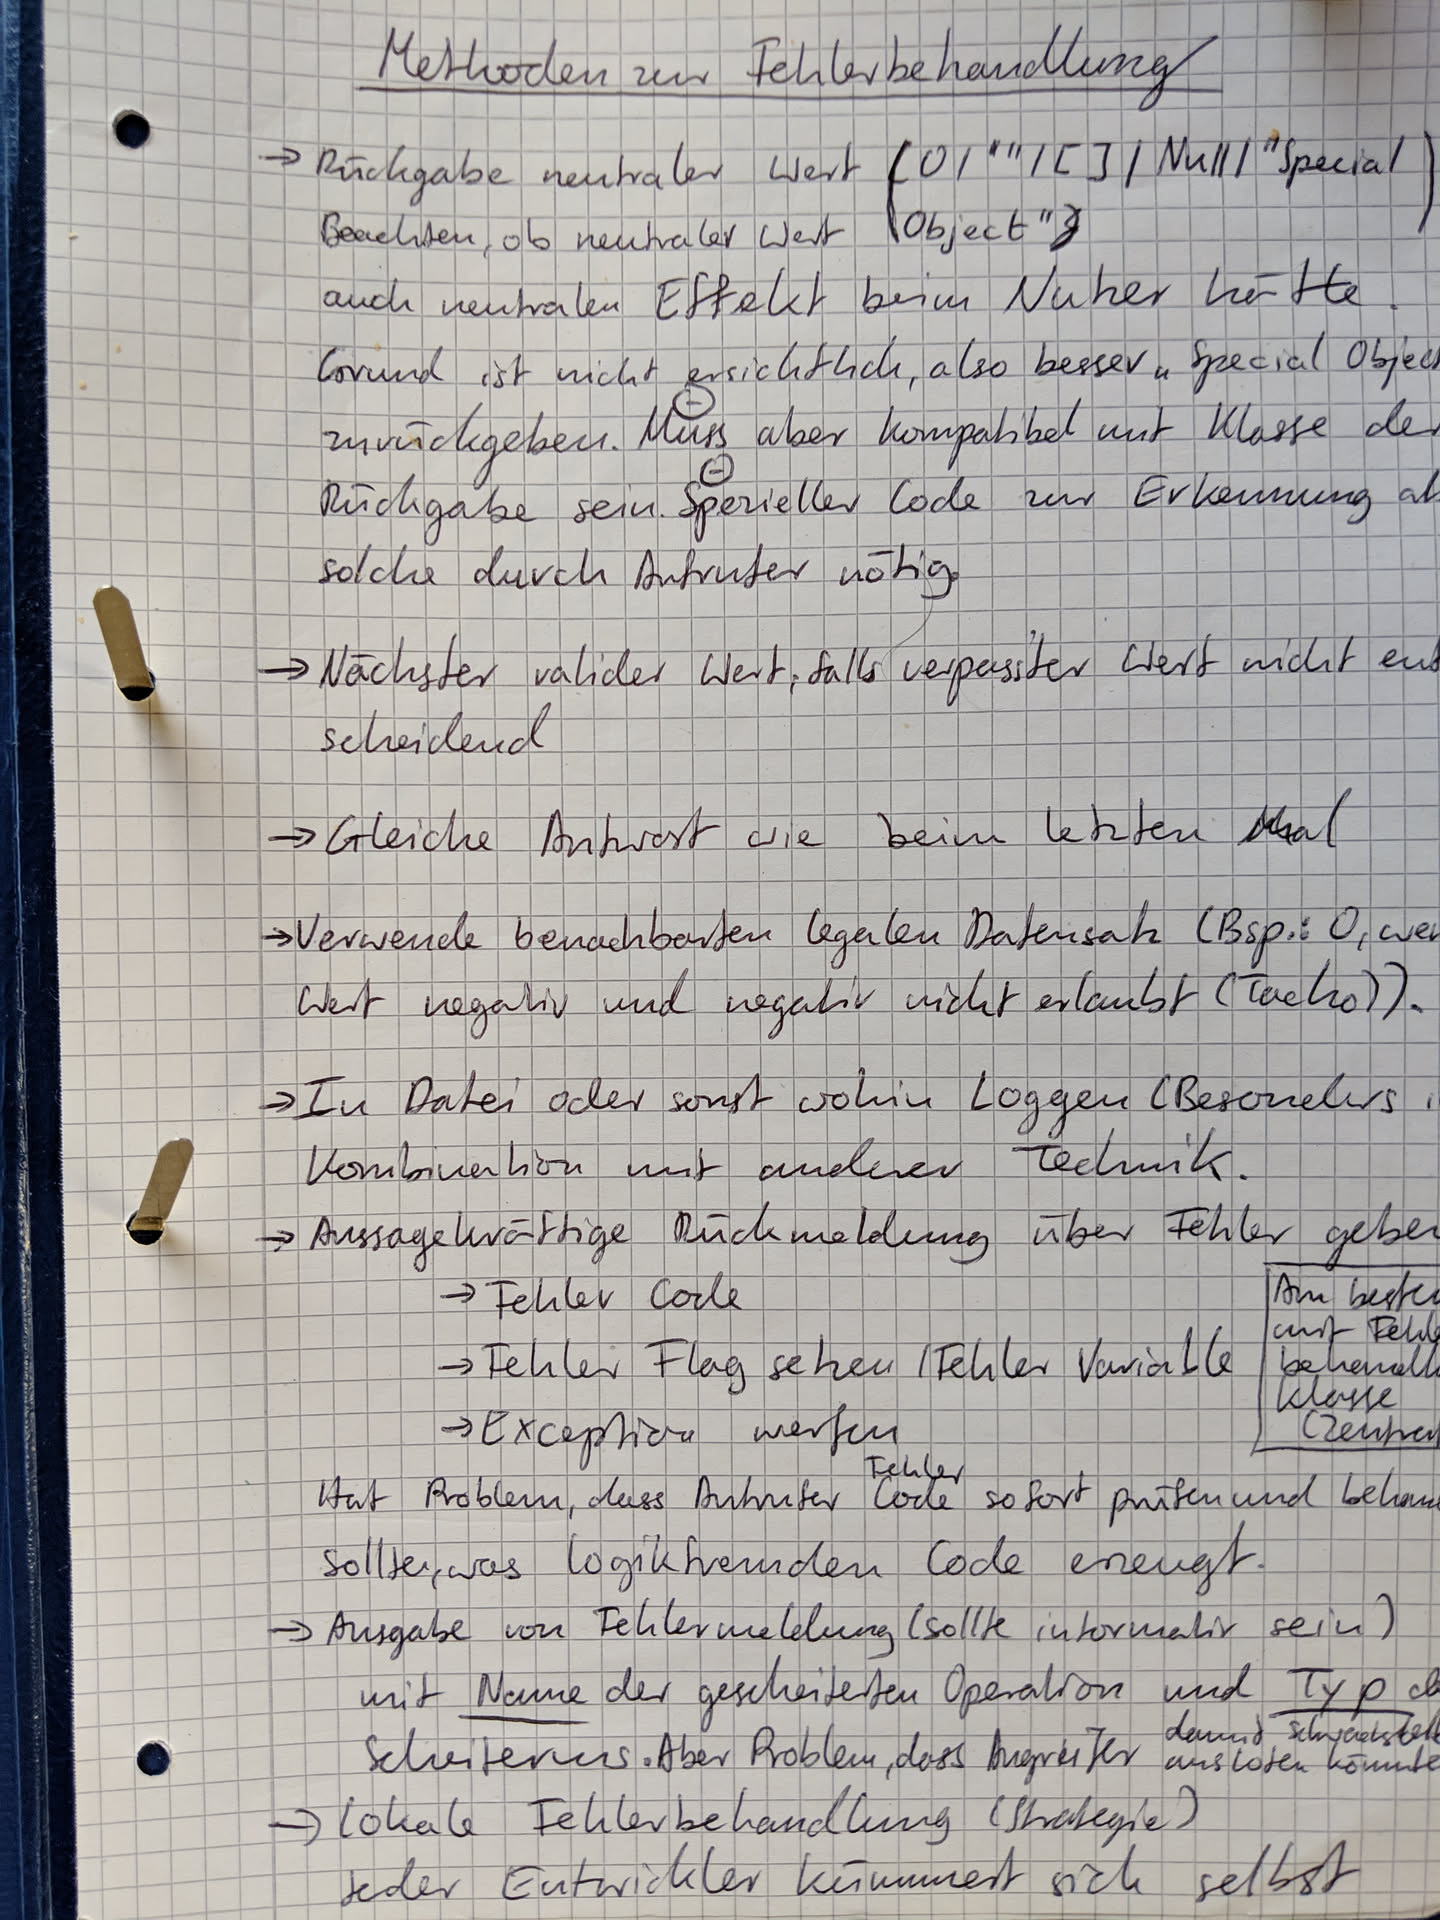 Methoden zur Fehlerbehandlung
→ Rückgabe neutraler Wert (0/""/[]/Null/"Special
Beachten, ob neutraler Wert Object")
auch neutralen Effekt beim Nutzer hätte.
Grund ist nicht ersichtlich, also besser „Special Objec
zurückgeben. Muss aber kompatibel mit Klasse der
Rückgabe sein. Spezieller Code zur Erkennung al
solche durch Aufrufer nötig.
→ Nächster valider Wert, falls verpasster Wert nicht ent
scheidend
→ Gleiche Antwort wie beim letzten Mal
→ Verwende benachbarten legalen Datensatz (Bsp.: 0, wen
Wert negativ und negativ nicht erlaubt (Tacho)).
→ In Datei oder sonst wohin Loggen (Besonders i
Kombination mit anderer Technik.
→ Aussagekräftige Rückmeldung über Fehler geben
→ Fehler Code
→ Fehler Flag setzen / Fehler Variable
→ Exception werfen
Am besten
mit Fehle
behandl
Klasse
(Zentral
Hat Problem, dass Aufrufer Fehler Code sofort prüfen und behan
sollte, was logikfremden Code erzeugt.
→ Ausgabe von Fehlermeldung (sollte informativ sein)
mit Name der gescheiterten Operation und Typ de
Scheiterns. Aber Problem, dass Angreifer damit Schwachstell
ausloten könnte
→ Lokale Fehlerbehandlung (Strategie)
Jeder Entwickler kümmert sich selbst